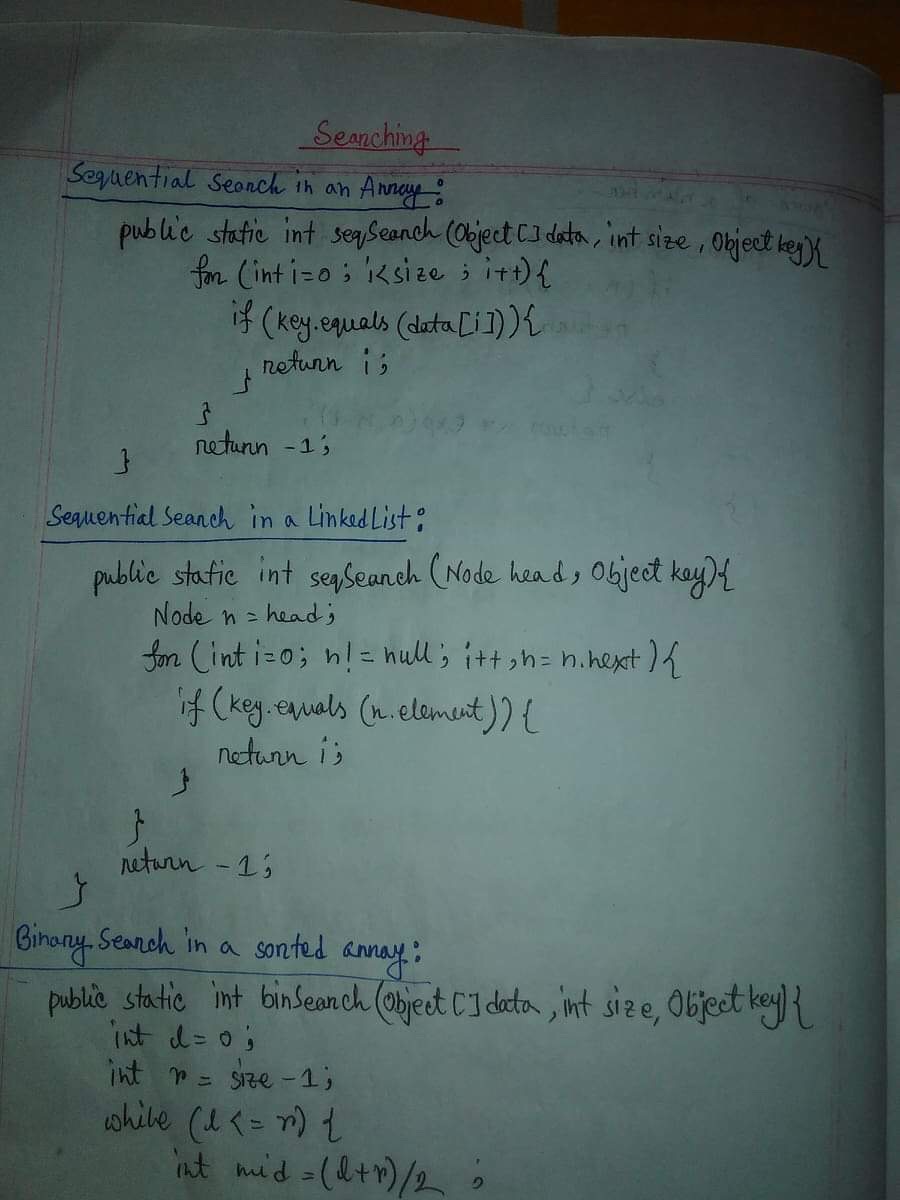 Searching
Sequential Search in an Array:
public static int seqSearch(Object[] data, int size, Object key){
for (int i=0; i<size; i++){
if (key.equals(data[i])){
return i;
}
}
return -1;
}
Sequential Search in a LinkedList:
public static int seqSearch(Node head, Object key){
Node n = head;
for (int i=0; n!=null; i++,n=n.next){
if (key.equals(n.element)){
return i;
}
}
return -1;
}
Binary Search in a sorted array:
public static int binSearch(Object[] data, int size, Object key){
int l=0;
int r = size-1;
while (l<=r) {
int mid =(l+r)/2 ;